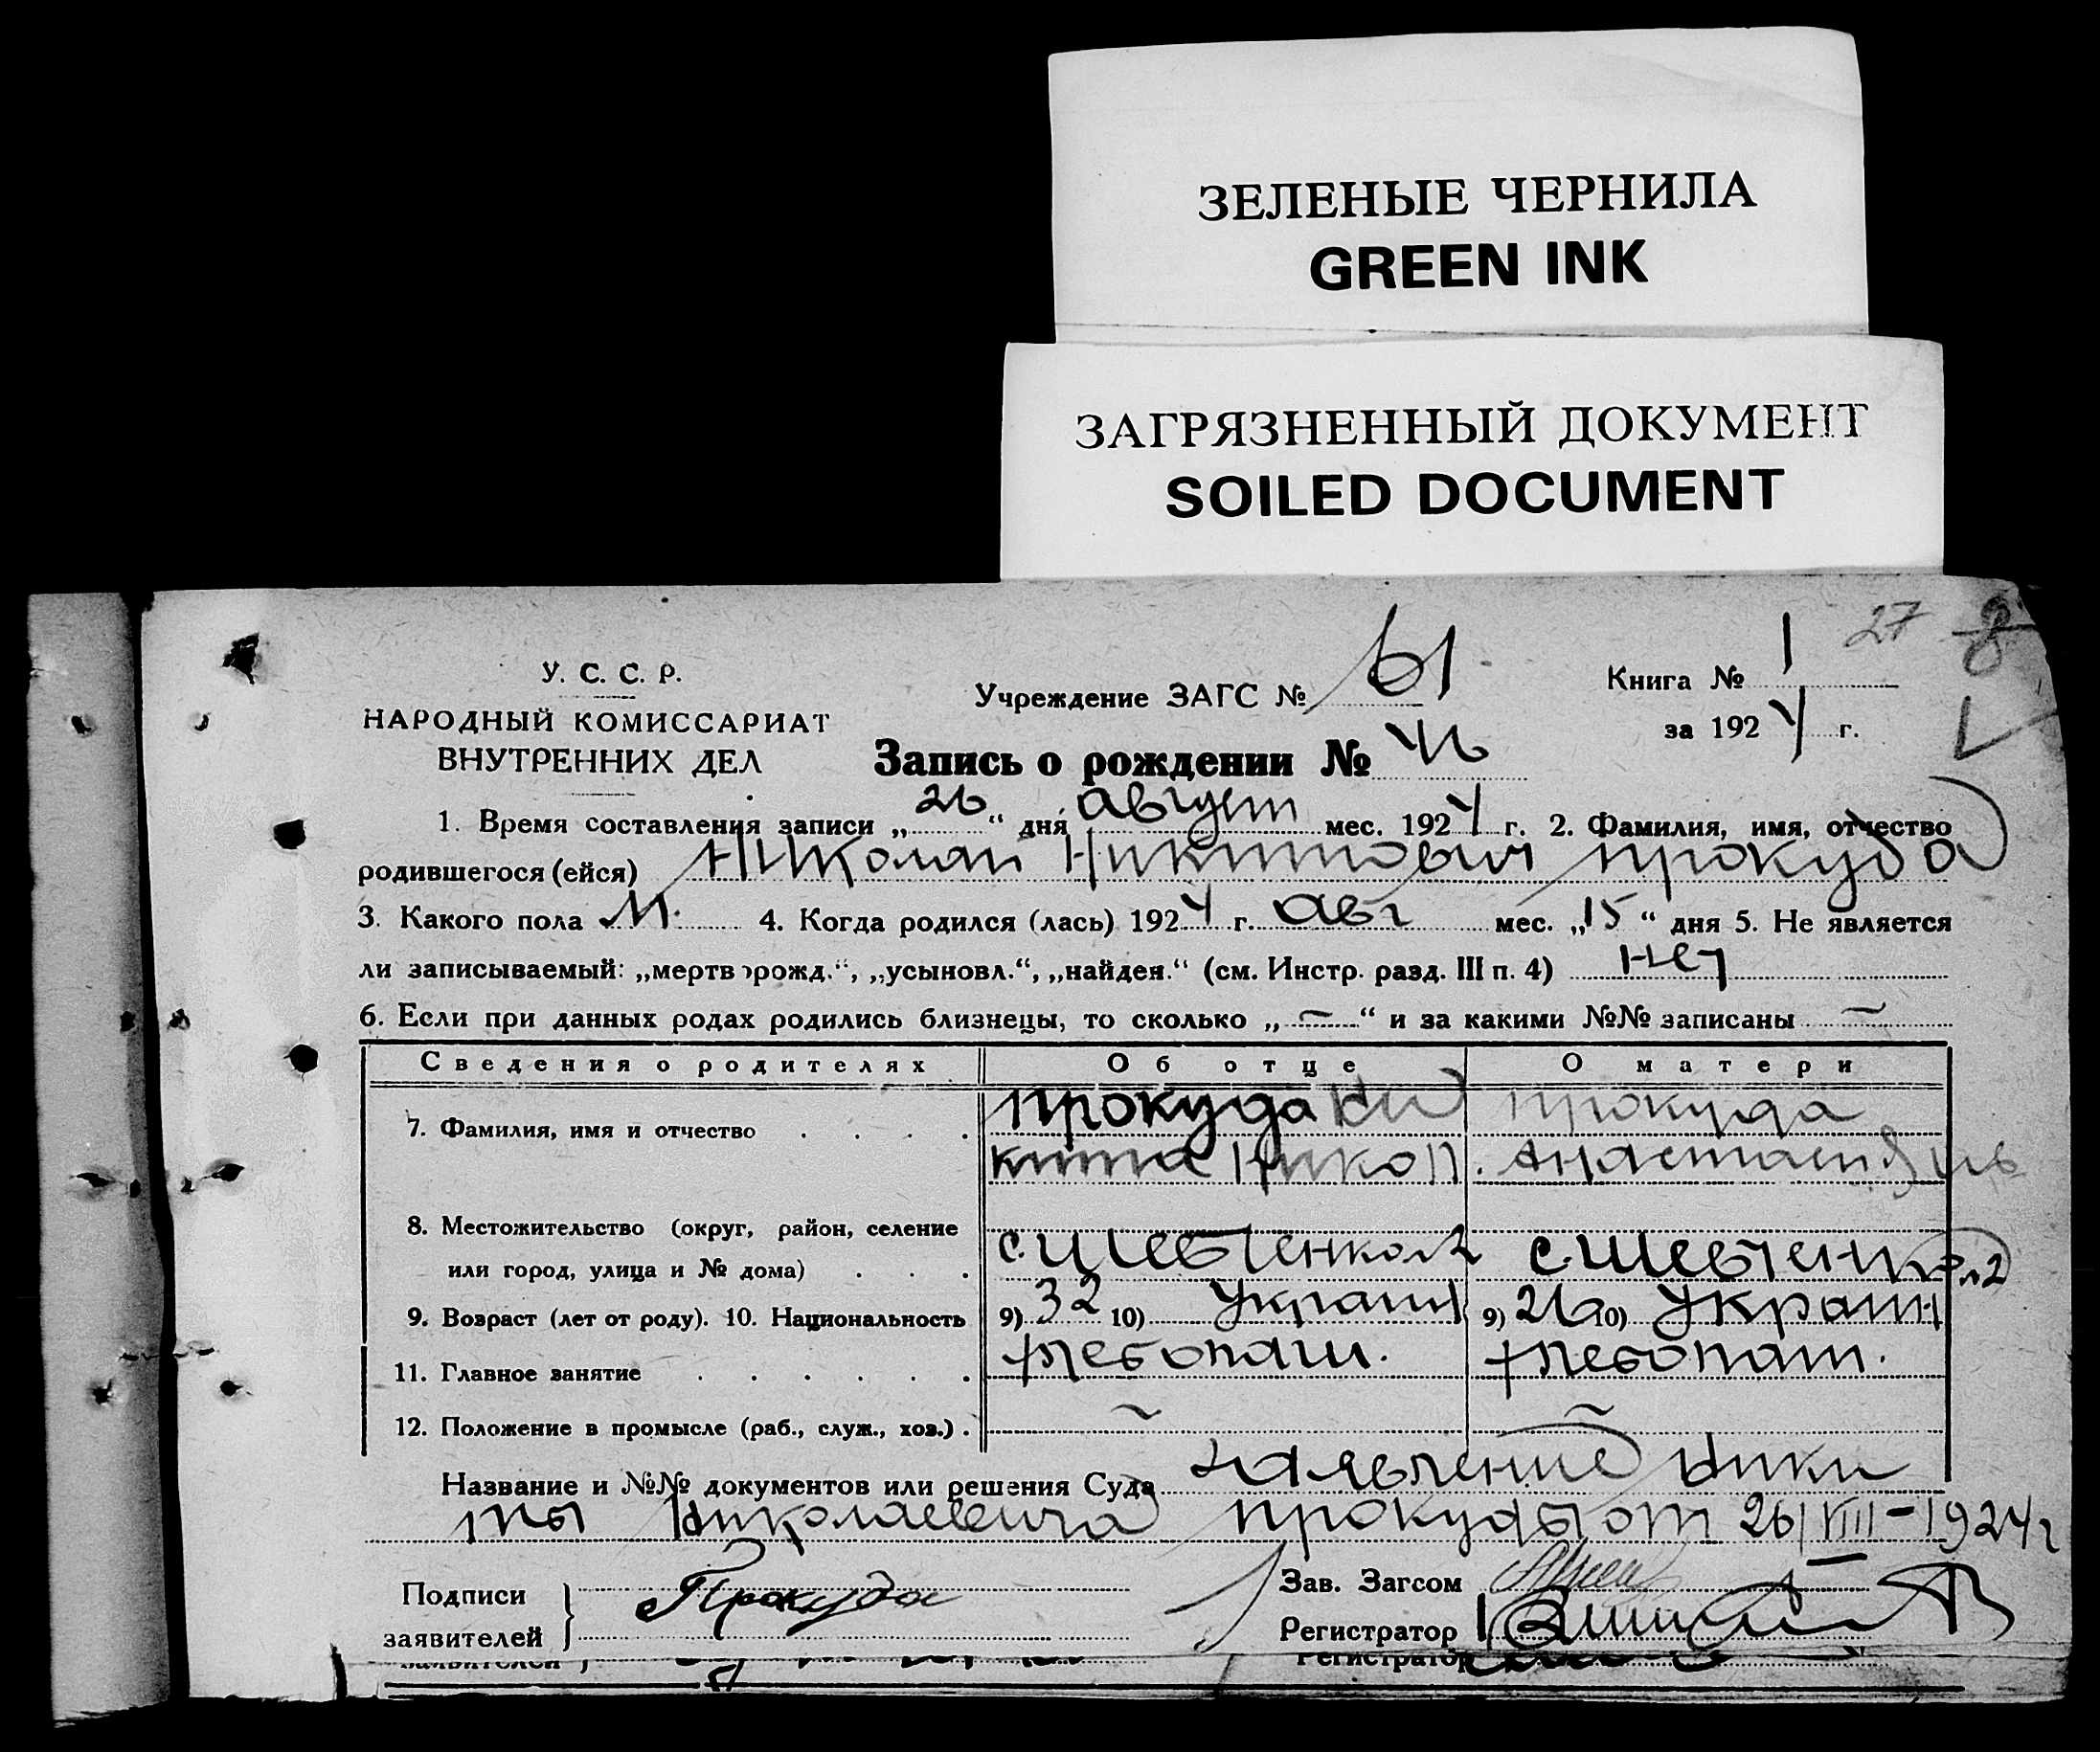 ЗЕЛЕНЫЕ ЧЕРНИЛА
GREEN INK
ЗАГРЯЗНЕННЫЙ ДОКУМЕНТ
SOILED DOCUMENT
27 8
У. С. С. Р.
НАРОДНЫЙ КОМИССАРИАТ
ВНУТРЕННИХ ДЕЛ
Учреждение ЗАГС № 61
Книга № 1
за 1924 г.
Запись о рождении № 46
1. Время составления записи „26“ дня август мес. 1924 г. 2. Фамилия, имя, отчество
родившегося (ейся) Николай Никитович Прокуда
3. Какого пола М. 4. Когда родился (лась) 1924 г. авг мес. „15“ дня 5. Не является
ли записываемый: „мертворожд.“, „усыновл.“, „найден.“ (см. Инстр. разд. III п. 4) нет
6. Если при данных родах родились близнецы, то сколько „–“ и за какими №№ записаны –
Сведения о родителях Об отце О матери
7. Фамилия, имя и отчество . . . . Прокуда Ни Прокуда
кита Никол. Анастасия
8. Местожительство (округ, район, селение
или город, улица и № дома) . . . с. Шевченко 2 с. Шевченко 2
9. Возраст (лет от роду). 10. Национальность 9) 32 10) Украин 9) 26 10) Украин
11. Главное занятие . . . . . . хлебопаш. хлебопаш.
12. Положение в промысле (раб., служ., хоз.) . – –
Название и №№ документов или решения Суда заявление Ники
ты Николаевича Прокуды от 26/VIII–1924 г
Подписи
заявителей
Прокуда
Зав. Загсом
Регистратор
заявителей
Регистратор